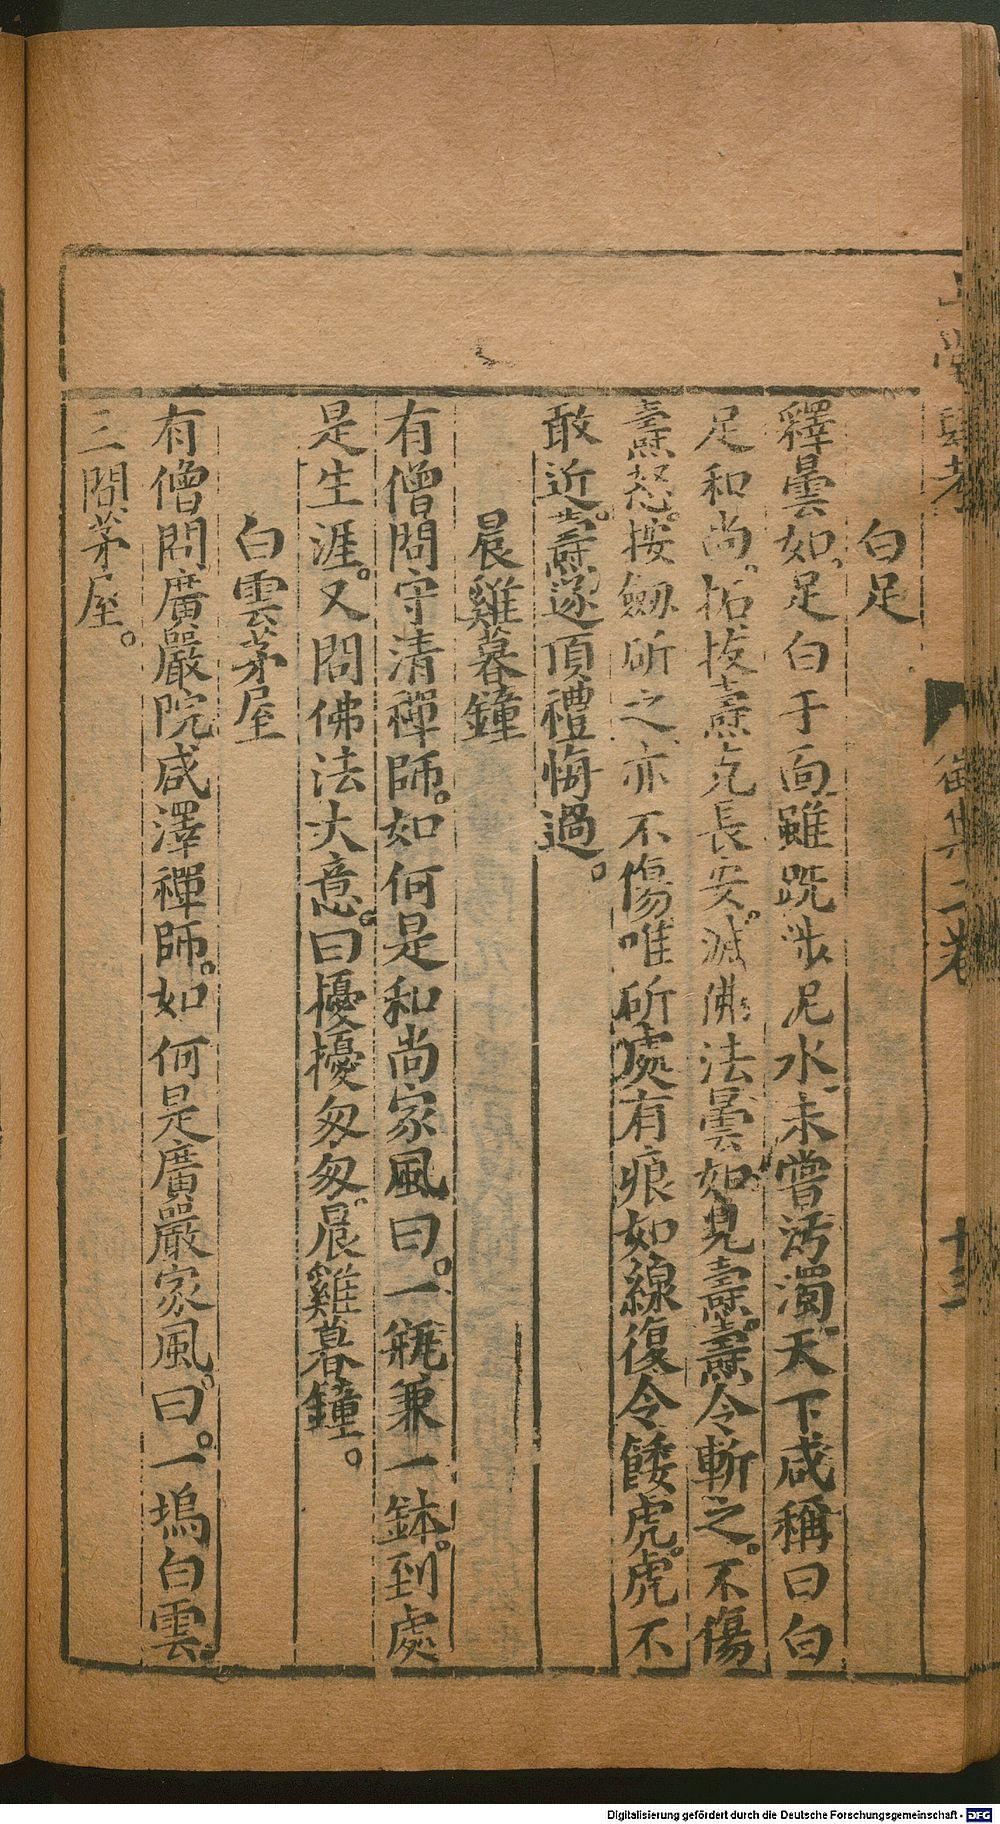 白足
釋曇如，足白于面，雖跣涉泥水，未嘗污濁。天下咸稱曰白
足和尚。拓拔燾克長安，滅佛法，曇如見燾。燾令斬之。不傷。
燾怒。按劒斫之，亦不傷，唯斫處有痕如線。復令餧虎。虎不
敢近。燾遂頂禮悔過。
晨雞暮鐘
有僧問守清禪師。如何是和尚家風曰。一瓶兼一鉢。到處
是生涯。又問佛法大意。曰擾擾匆匆。晨雞暮鐘。
白雲茅屋
有僧問廣嚴院咸澤禪師。如何是廣嚴家風。曰。一塢白雲。
三間茅屋。
二卷
十三
Digitalisierung gefördert durch die Deutsche Forschungsgemeinschaft - DFG